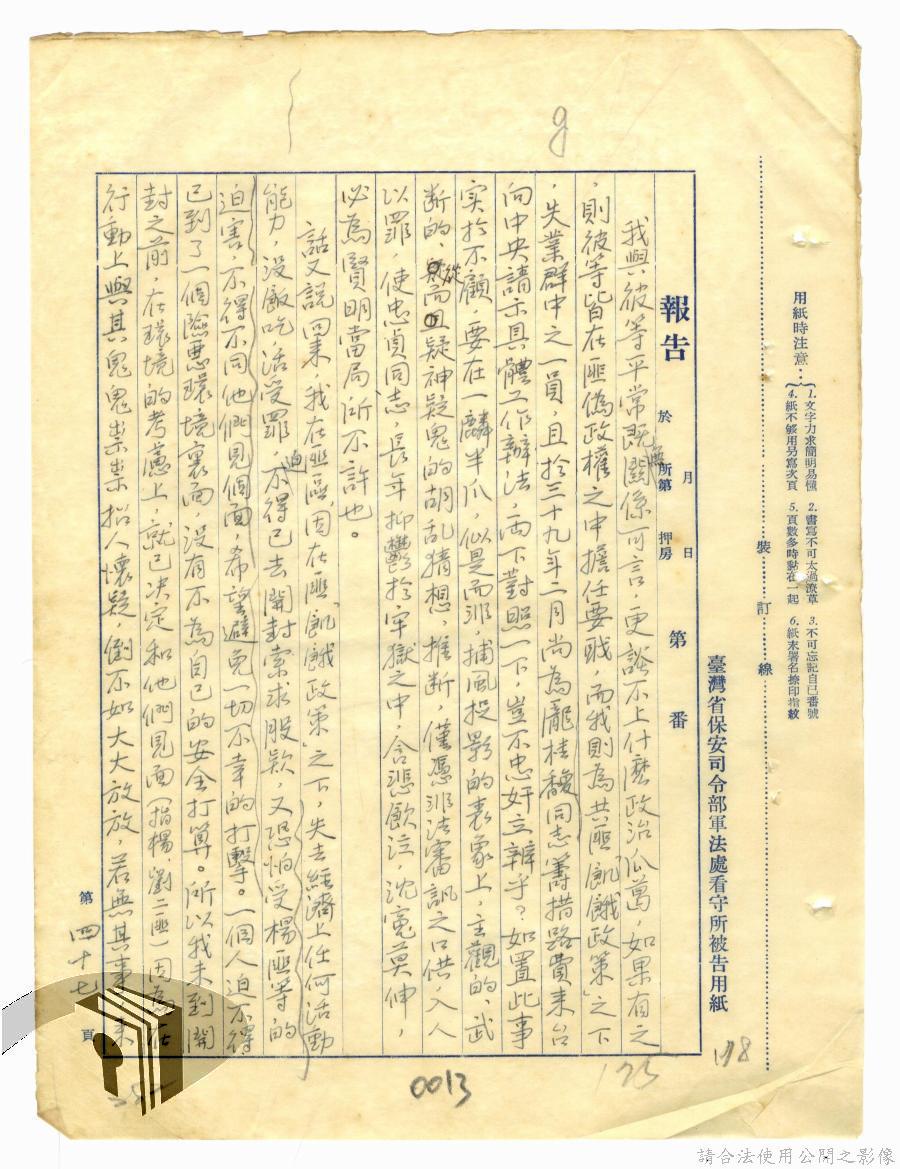 用紙時注意：
1. 文字力求簡明易懂
2. 書寫不可太過潦草
3. 不可忘記自己番號
4. 紙不够用另寫次頁
5. 頁數多時黏在一起
6. 紙末署名捺印指紋
裝訂線
臺灣省保安司令部軍法處看守所被告用紙
報告 於 月 日
所第 押房 第 番
我與彼等平常既無關係可言，更談不上什麼政治瓜葛，如果有之
，則彼等皆在匪偽政權之中擔任要職，而我則為共匪「飢餓政策」之下
，失業群中之一員，且於三十九年二月尚為龐桂馥同志籌措路費來台
向中央請示具體工作辦法，兩下對照一下，豈不忠奸立辨乎？如置此事
实於不顧，要在一麟半爪，似是而非，捕風投影的表象上，主觀的、武
断的、從而疑神疑鬼的胡乱猜想，推断，僅憑非法審訊之口供，入人
以罪，使忠貞同志，長年抑鬱於牢獄之中，含悲飲泣，沈寃莫伸，
必為賢明當局所不許也。
話又說回來，我在匪區，因在匪「飢餓政策」之下，失去經濟上任何活動
能力，没飯吃，活受罪，迫不得已去開封索求股款，又恐怕受楊匪等的
迫害，不得不同他們見個面，希望避免一切不幸的打擊。一個人迫不得
已到了一個險惡環境裏面，没有不為自己的安全打算。所以我未到開
封之前，在環境的考慮上，就已决定和他們見面（指楊、劉二匪）因為在
行動上與其鬼鬼祟祟招人懷疑，倒不如大大放放，若無其事、来
第 四十七 頁
0013
175
178
9
請合法使用公開之影像